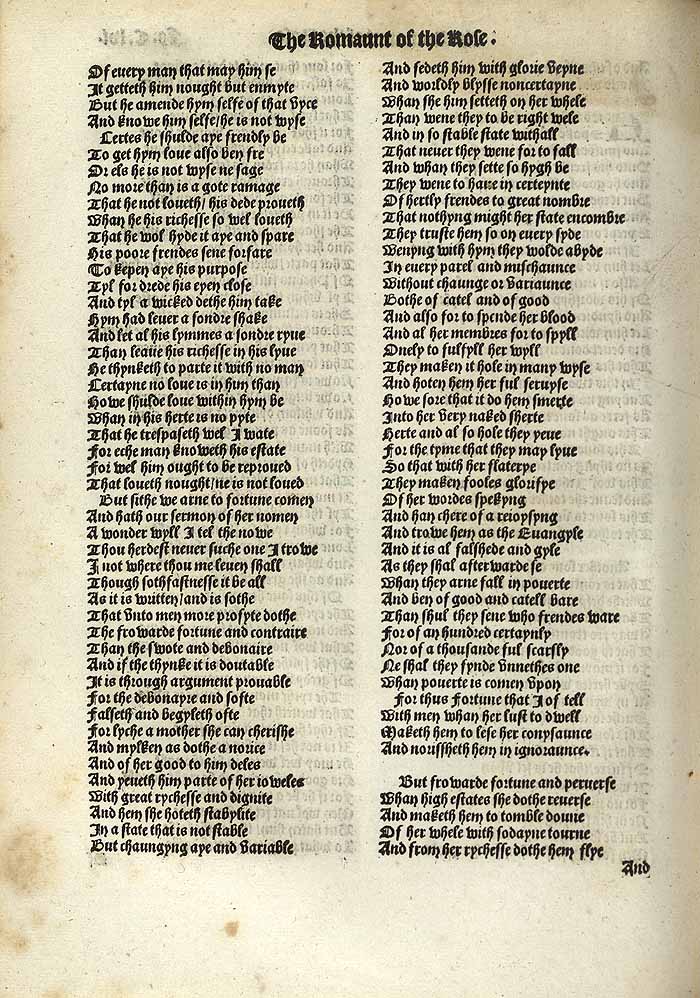 The Romaunt of the Rose.
Of euery man that may him se
It getteth him nought but enmyte
But he amende hym selfe of that vyce
And knowe him selfe/he is not wyse
Certes he shulde aye frendly be
To get hym loue also ben fre
Or els he is not wyse ne sage
No more than is a gote ramage
That he not loueth/ his dede proueth
Whan he his richesse so wel loueth
That he wol hyde it aye and spare
His poore frendes sene forfare
To kepen aye his purpose
Tyl for drede his eyen close
And tyl a wicked dethe him take
Hym had leuer a sondre shake
And let al his lymmes a sondre ryue
Than leaue his richesse in his lyue
He thynketh to parte it with no man
Certayne no loue is in him than
Howe shulde loue within hym be
Whan in his herte is no pyte
That he trespaseth wel I wate
For eche man knoweth his estate
For wel him ought to be reproued
That loueth nought/ne is not loued
But sithe we arne to fortune comen
And hath our sermon of her nomen
A wonder wyll I tel the nowe
Thou herdest neuer suche one I trowe
I not where thou me leuen shall
Though sothfastnesse it be all
As it is written/and is sothe
That vnto men more profyte dothe
The frowarde fortune and contraire
Than the swote and debonaire
And if the thynke it is doutable
It is through argument prouable
For the debonayre and softe
Falseth and begyleth ofte
For lyche a mother she can cherishe
And mylken as dothe a norice
And of her good to him deles
And yeueth him parte of her ioweles
With great rychesse and dignite
And hem she hoteth stabylite
In a state that is not stable
But chaungyng aye and variable
And fedeth him with glorie veyne
And worldly blysse noncertayne
Whan she him setteth on her whele
Than wene they to be right wele
And in so stable state withall
That neuer they wene for to fall
And whan they sette so hygh be
They wene to haue in certeynte
Of hertly frendes to great nombre
That nothyng might her state encombre
They truste hem so on euery syde
Wenyng with hym they wolde abyde
In euery parel and mischaunce
Without chaunge or variaunce
Bothe of catel and of good
And also for to spende her blood
And al her membres for to spyll
Onely to fulfyll her wyll
They maken it hole in many wyse
And hoten hem her ful seruyse
Howe sore that it do hem smerte
Into her very naked sherte
Herte and al so hole they yeue
For the tyme that they may lyue
So that with her flaterye
They maken fooles glorifye
Of her wordes spekyng
And han chere of a reioysyng
And trowe hem as the Euangyle
And it is al falshede and gyle
As they shal afterwarde se
Whan they arne fall in pouerte
And ben of good and catell bare
Than shul they sene who frendes ware
For of an hundred certaynly
Nor of a thousande ful scarsly
Ne shal they fynde vnnethes one
Whan pouerte is comen vpon
For thus Fortune that I of tell
With men whan her lust to dwell
Maketh hem to lese her conysaunce
And norissheth hem in ignoraunce.
But frowarde fortune and peruerse
Whan high estates she dothe reuerse
And maketh hem to tomble doune
Of her whele with sodayne tourne
And from her rychesse dothe hem flye
And